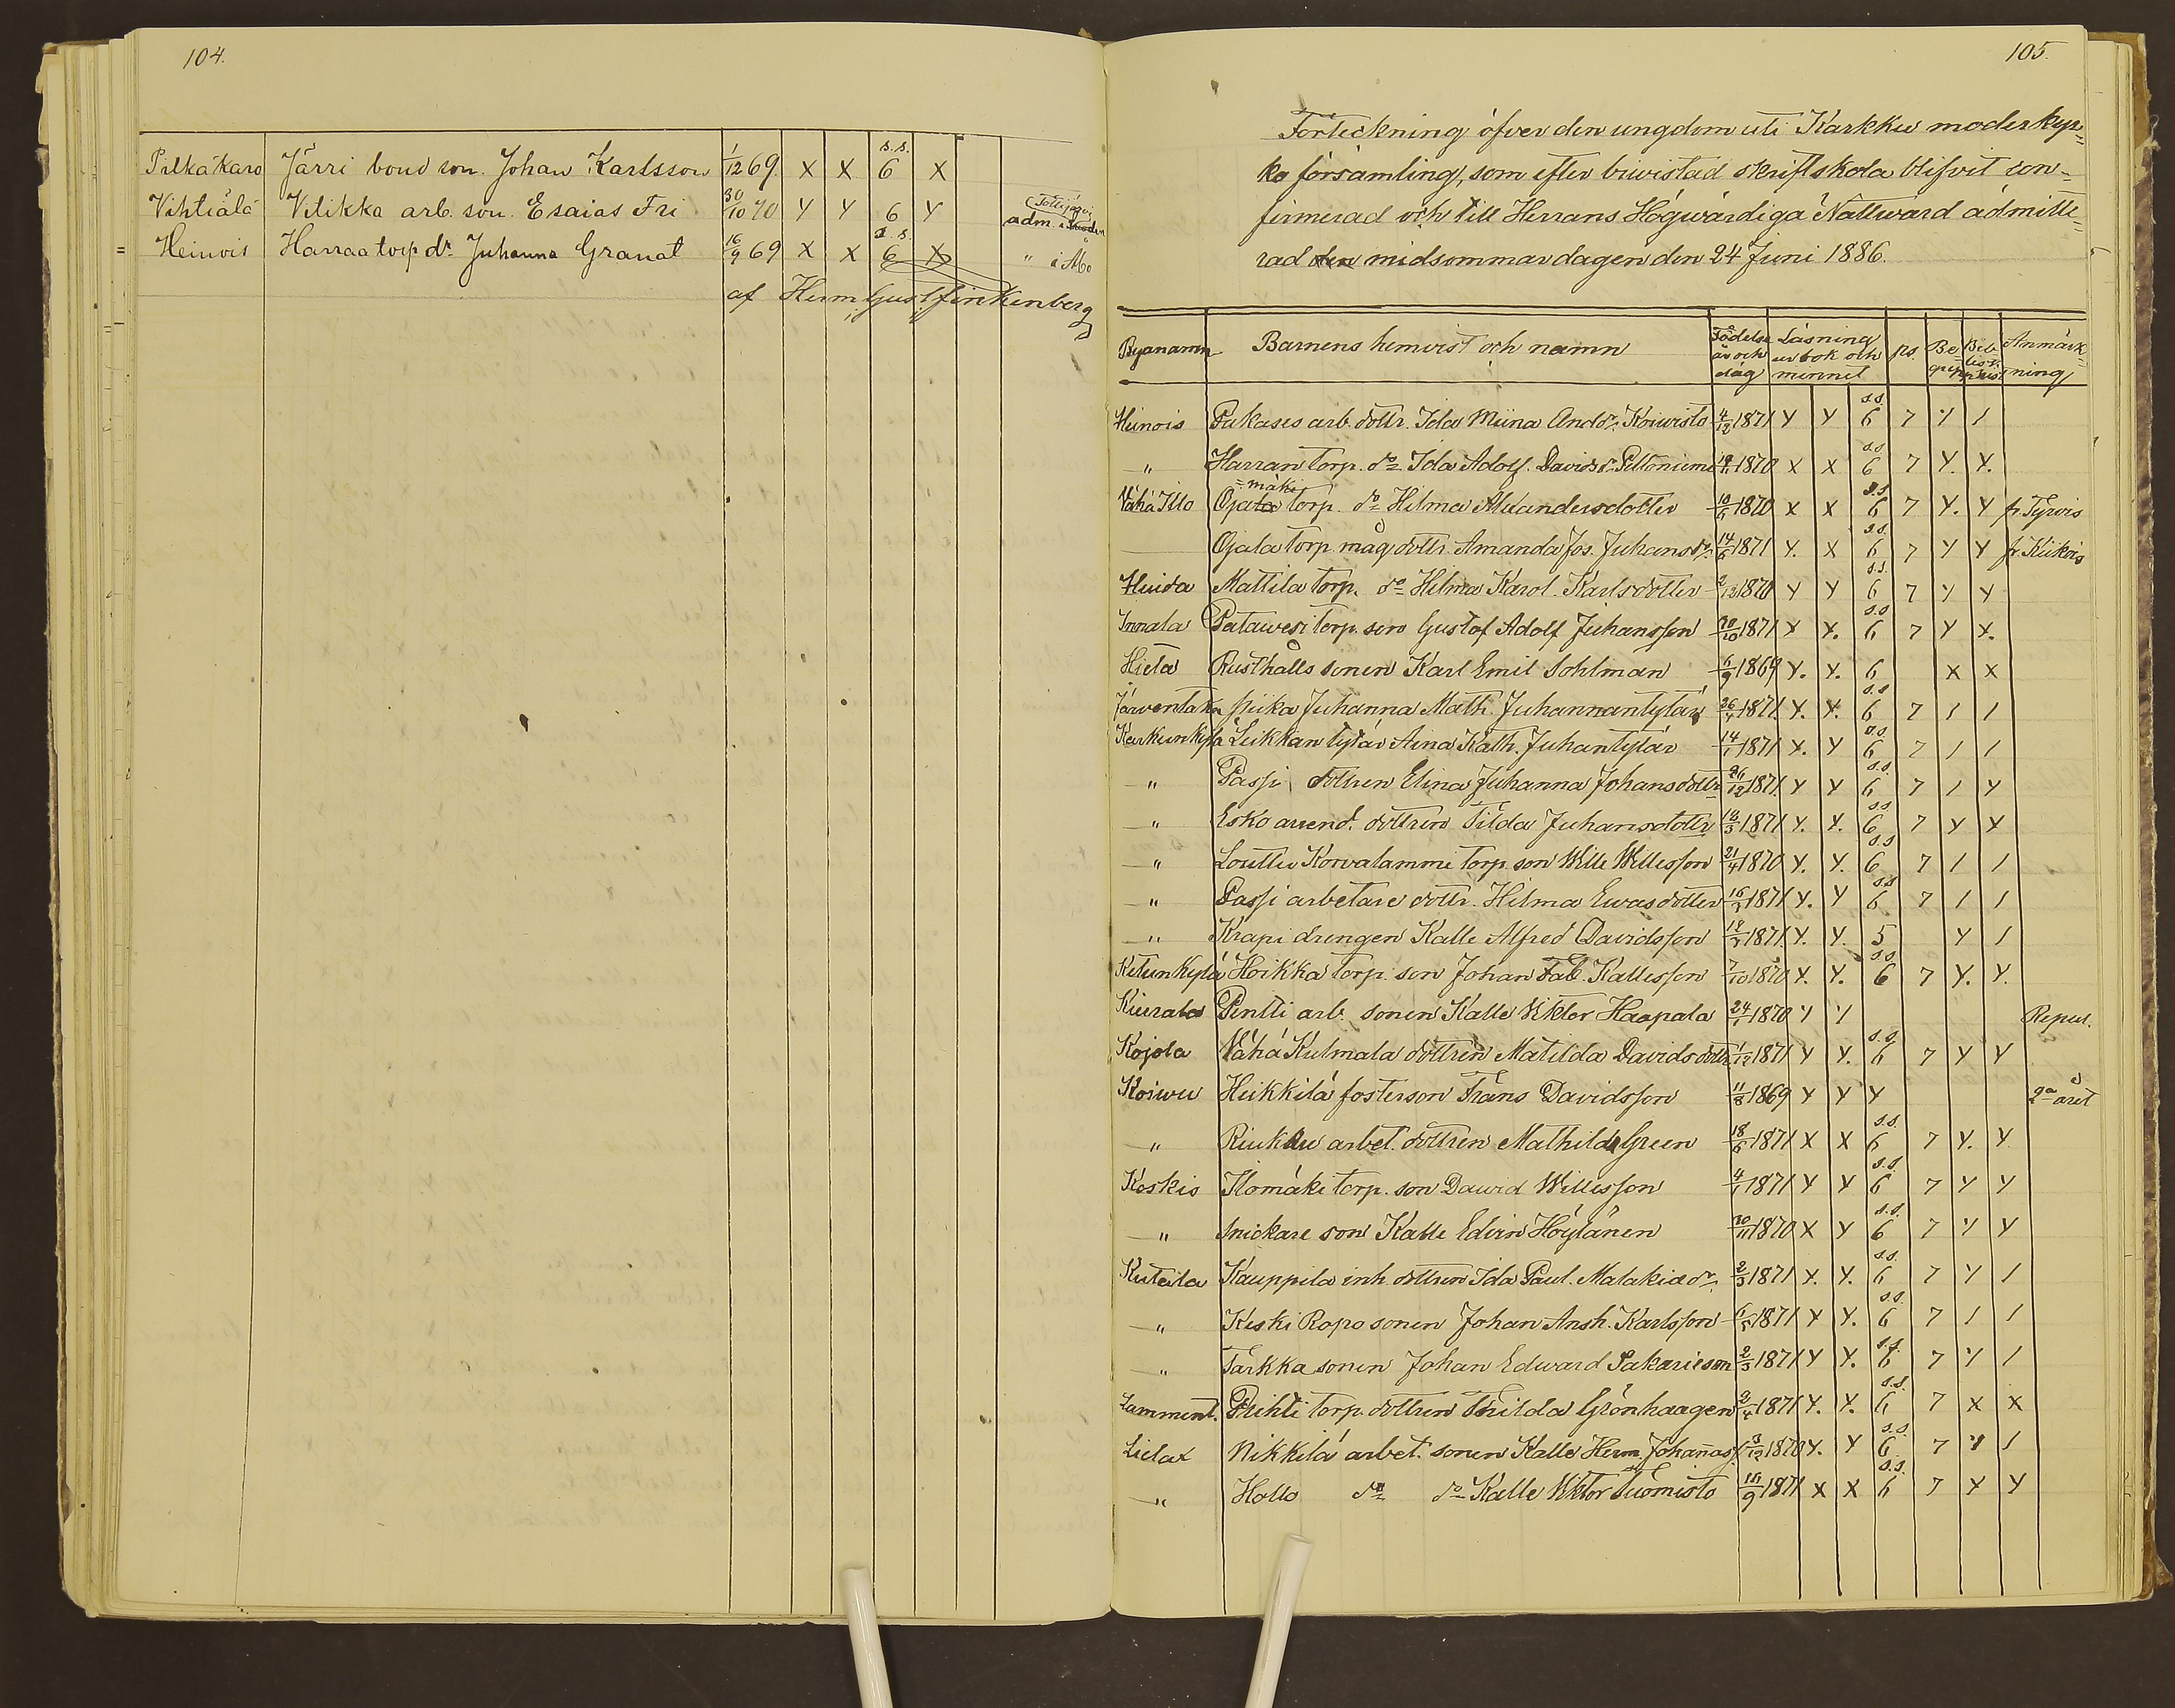 104.
Pilkäkaro Järri bond son. Johan Karlsson 1/12 69. X X s.s. 6 X
Vihtiälä Vilikka arb. son. Esaias Fri 30/10 70 Y Y 6 Y adm. i
Heinois Harraa torp dr. Juhanna Granat 16/9 69 X X s.s. 6 X " i Åbo
af Herm. Gust. Finkenberg
105.
Förteckning öfver den ungdom uti Karkku moderkyr=
ko församling, som efter biwistad skriftskola blifvit con-
firmerad och till Herrans Högwärdiga Nattward admitte=
rad den midsommardagen den 24 Juni 1886.
Byanamn Barnens hemvist och namn Födelse år och dag Läsning ur bok och minnet ps. Be grepp Bib. Anmärk=ning
Heinois Pukases arb. dottr. Ida Miina And. dr. Koiwisto 4/12 1871 Y Y s.s. 6 7 Y /
" Harran torp. do Ida Adolf. Davids dr Peltoniemi 1870 X X s.s. 6 7 Y. Y.
Vähä Illo Ojala =mäki torp. do Hilma Alexandersdotter 10/6 1870 X X s.s. 6 7 Y. Y fr. Tyrvis
Ojala torp. måg dottr. Amanda Jos. Juhans dr. 14/6 1871 Y. X s.s. 6 7 Y Y fr. Kiikois
Huida Mattila torp. do Hilma Karol. Karlsdotter 2/12 1870 Y Y s.s. 6 7 Y Y
Innala Patawesi torp. son Gustaf Adolf Juhansson 30/10 1871 X X. s.s. 6 7 Y X.
Hieta Rusthålls sonen Karl Emil Sohlman 6/9 1869 Y. Y. 6 X X
Järventaka piika Juhanna Math. Juhannantytär 26/4 1871. Y. Y. s.s. 6 7 / /
Karkunkylä Leikkan tytär Aina Kath. Juhantytär 14/1 1871 X. Y s.s. 6 7 / /
" Passi dottren Elina Juhanna Johansdottr. 26/12 1871. Y Y s.s. 6 7 / Y
" Esko arrend. dottren Tilda Juhansdottr 16/3 1871 Y. Y. s.s. 6 7 Y X
" Louttu Korvalammi torp. son Wille Willesson 21/4 1870 Y. Y. s.s. 6 7 / /
" Passi arbetare dottr. Hilma Ewasdotter 16/3 1871 Y. Y s.s. 6 7 / /
" Krapi drengen Kalle Alfred Davidsson 1871. Y. Y. 5 Y /
Ketunkylä Hoikka torp. son Johan Fab. Kallesson 7/10 1870 Y. Y. s.s. 6 7 Y. Y.
Kiurala Pentti arb. sonen Kalle Viktor Haapala 24/1 1870 Y Y Repul.
Kojola Vähä Kulmala dottren Matilda Davidsdottr. 1/12 1871 Y Y. s.s. 6 7 Y Y
Koiwu Heikkilä fosterson Frans Davidsson 11/8 1869 Y Y Y 2a året
" Riukku arbet. dottren Mathilda Green 18/6 1871 X X s.s. 6 7 Y. Y
Koskis Ilomäki torp. son Dawid Willesson 4/1 1871 Y Y s.s. 6 7 Y Y
" Snickare son Kalle Edvin Höylänen 30/11 1870 X Y s.s. 6 7 Y Y
Kutala Kauppila inh. dottren Ida Paul. Malakias dr. 2/3 1871 Y. Y. s.s. 6 7 Y /
" Keski Ropo sonen Johan Ansh. Karlsson 6/5 1871 Y Y. s.s. 6 7 / /
" Tärkka sonen Johan Edward Sakarieson 2/3 1871 Y Y. s.s. 6 7 Y /
Lamment. Prihti torp. dottren Thilda Grönhaagen 2/4 1871 Y. Y. s.s. 6 7 X X
Lielax Nikkilä arbet. sonen Kalle Herm. Johannas 3/12 1870 Y. Y s.s. 6 7 Y /
" Hollo do do Kalle Viktor Tuomisto 16/9 1871 X X s.s. 6 7 X Y